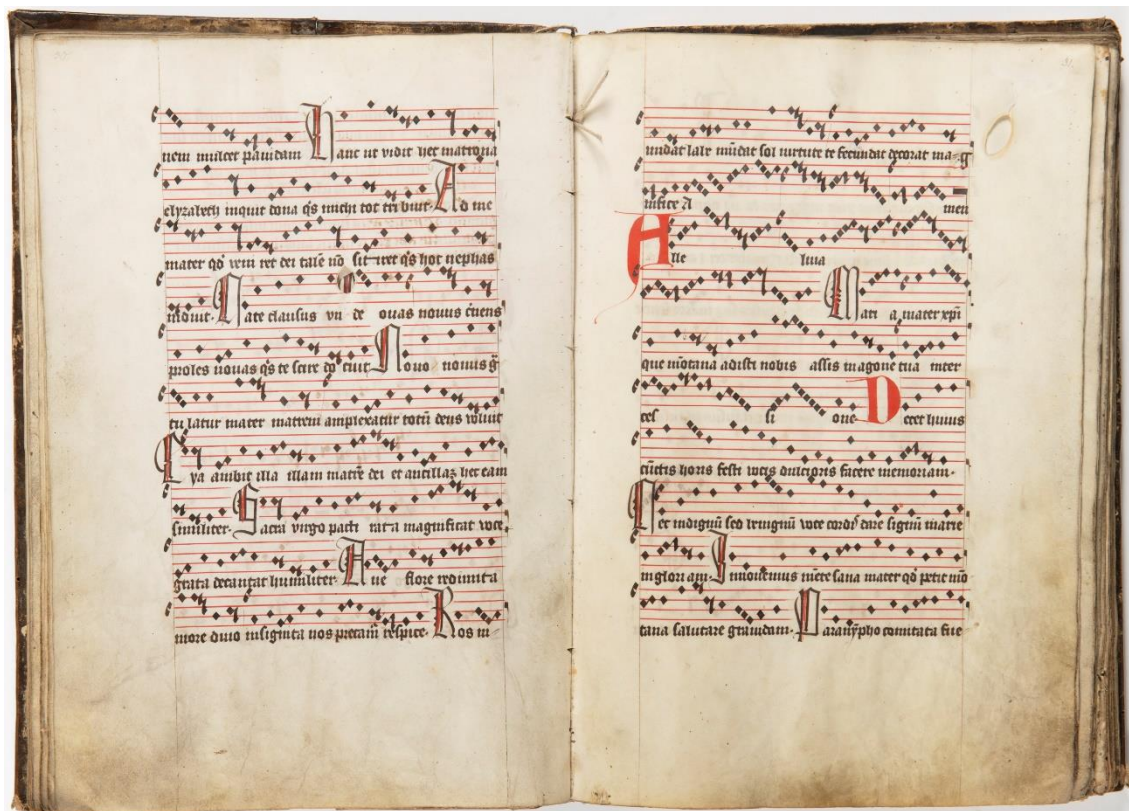 nem mulcet pavidam Hanc ut vidit hec matrona
elyzabeth inquit dona qs michi tot tribuit Ad me
mater qd veni ret dei talē nō sit vet qs hoc nephas
induit Nate clausus vn de ovas novus
proles novas qs te scire Novo novus
tu latur mater matrem amplexatur totū deus voluit
Eya ambit illa illam matrē dei et ancillaz hec eam
similiter Sacra virgo parti rata magnificat voce
grata decantat humiliter Ave flore redimita
more divo insignita nos precam respice Ros in
undat lalr mūdat sol virtute te fecundat decorat mag
nifice A men
Alle luia
Mari a mater xpi
que mōtana adisti nobis assis in agone tua inter
ces si one Decet huius
cūctis horis festi vocis dulcioris facere memoriam
Et indignū sed benignū voce cordis dare signū marie
in gloriam Innovemus mēte sana mater qd petit mō
tana salutare gravidam Paranÿpho comitata sive